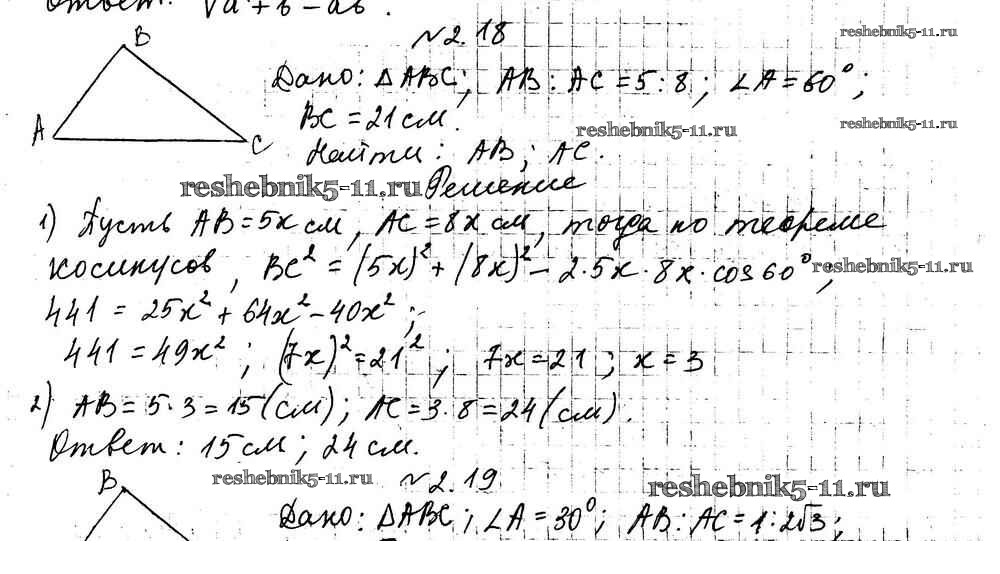 Ответ: √a²+b²−ab.
B
№2.18
reshebnik5-11.ru
Дано: ΔABC; AB:AC=5:8; ∠A=60°;
BC=21см.
reshebnik5-11.ru
reshebnik5-11.ru
A
C
Найти: AB; AC.
reshebnik5-11.ru
Решение
1) Пусть AB=5x см, AC=8x см, тогда по теореме
косинусов, BC²=(5x)²+(8x)²−2·5x·8x·cos60°;
reshebnik5-11.ru
441=25x²+64x²−40x²;
441=49x²; (7x)²=21²; 7x=21; x=3
2) AB=5·3=15(см); AC=3·8=24(см).
Ответ: 15см; 24см.
B
reshebnik5-11.ru
№2.19
reshebnik5-11.ru
Дано: ΔABC; ∠A=30°; AB:AC=1:2√3;